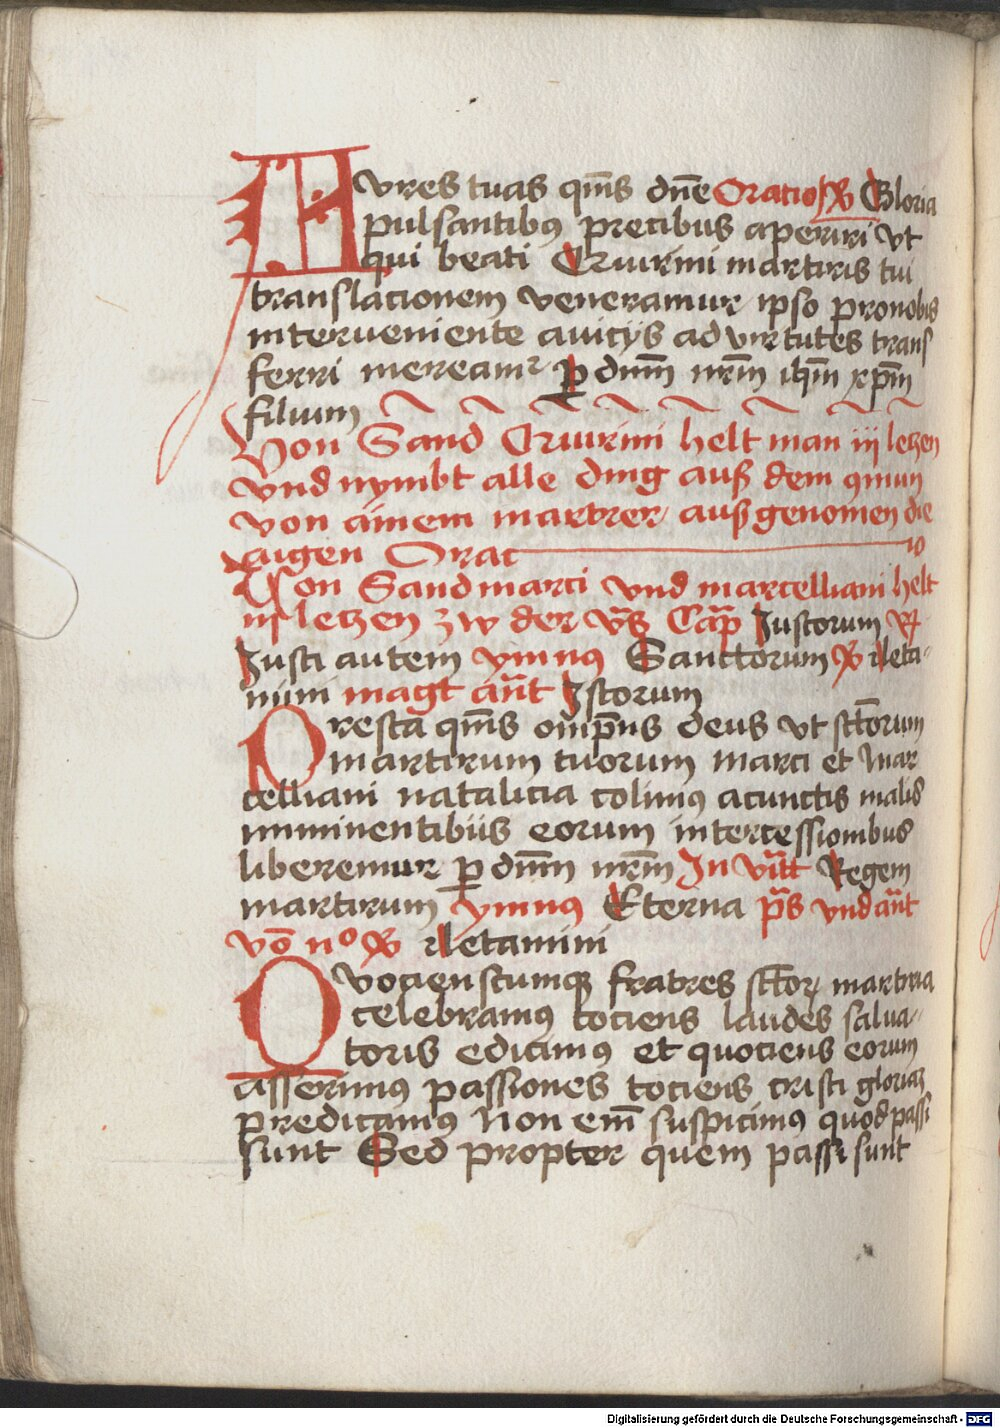 Aures tuas qm̄s dn̄e Oratio ℣ Gloria
pulsantibus precibus aperiri vt
qui beati Crwirini martiris tui
translacionem veneramur ipso pronobis
interueniente auicijs ad virtutes trans
ferri mereamr p̱ dn̄m nr̄m ih̄m xp̄m
filium
Von Sand Crwirini helt man iij leczen
vnd nymbt alle ding auß dem gmun
von ainem martrer außgenomen die
aigen Oracio
Von Sand marci vnd marcelliani helt
iij leczen zw der vs̄ Cap̄ Justorum ℟
Justi autem ymnus Sanctorum ℣ Leta-
mini magt an̄t Istorum
Presta qm̄s omp̄ns deus vt sct̄orum
martirum tuorum marci et Mar
celliani natalicia colimus acunctis malis
imminentibus eorum intercessionibus
liberemur p̱ dn̄m nr̄m In vitt̄ Regem
martirum ymnus Eterna ps̄ vnd an̄t
vō no ℣ Letamini
Quocienscumqꝫ fratres sct̄oꝝ martiria
celebramus tociens laudes salua-
toris edicimus et quociens eorum
asserimus passiones tociens cristi gloriam
predicamus Non em̄ suspicimus quod passi
sunt Sed propter quem passi sunt
Digitalisierung gefördert durch die Deutsche Forschungsgemeinschaft - DFG